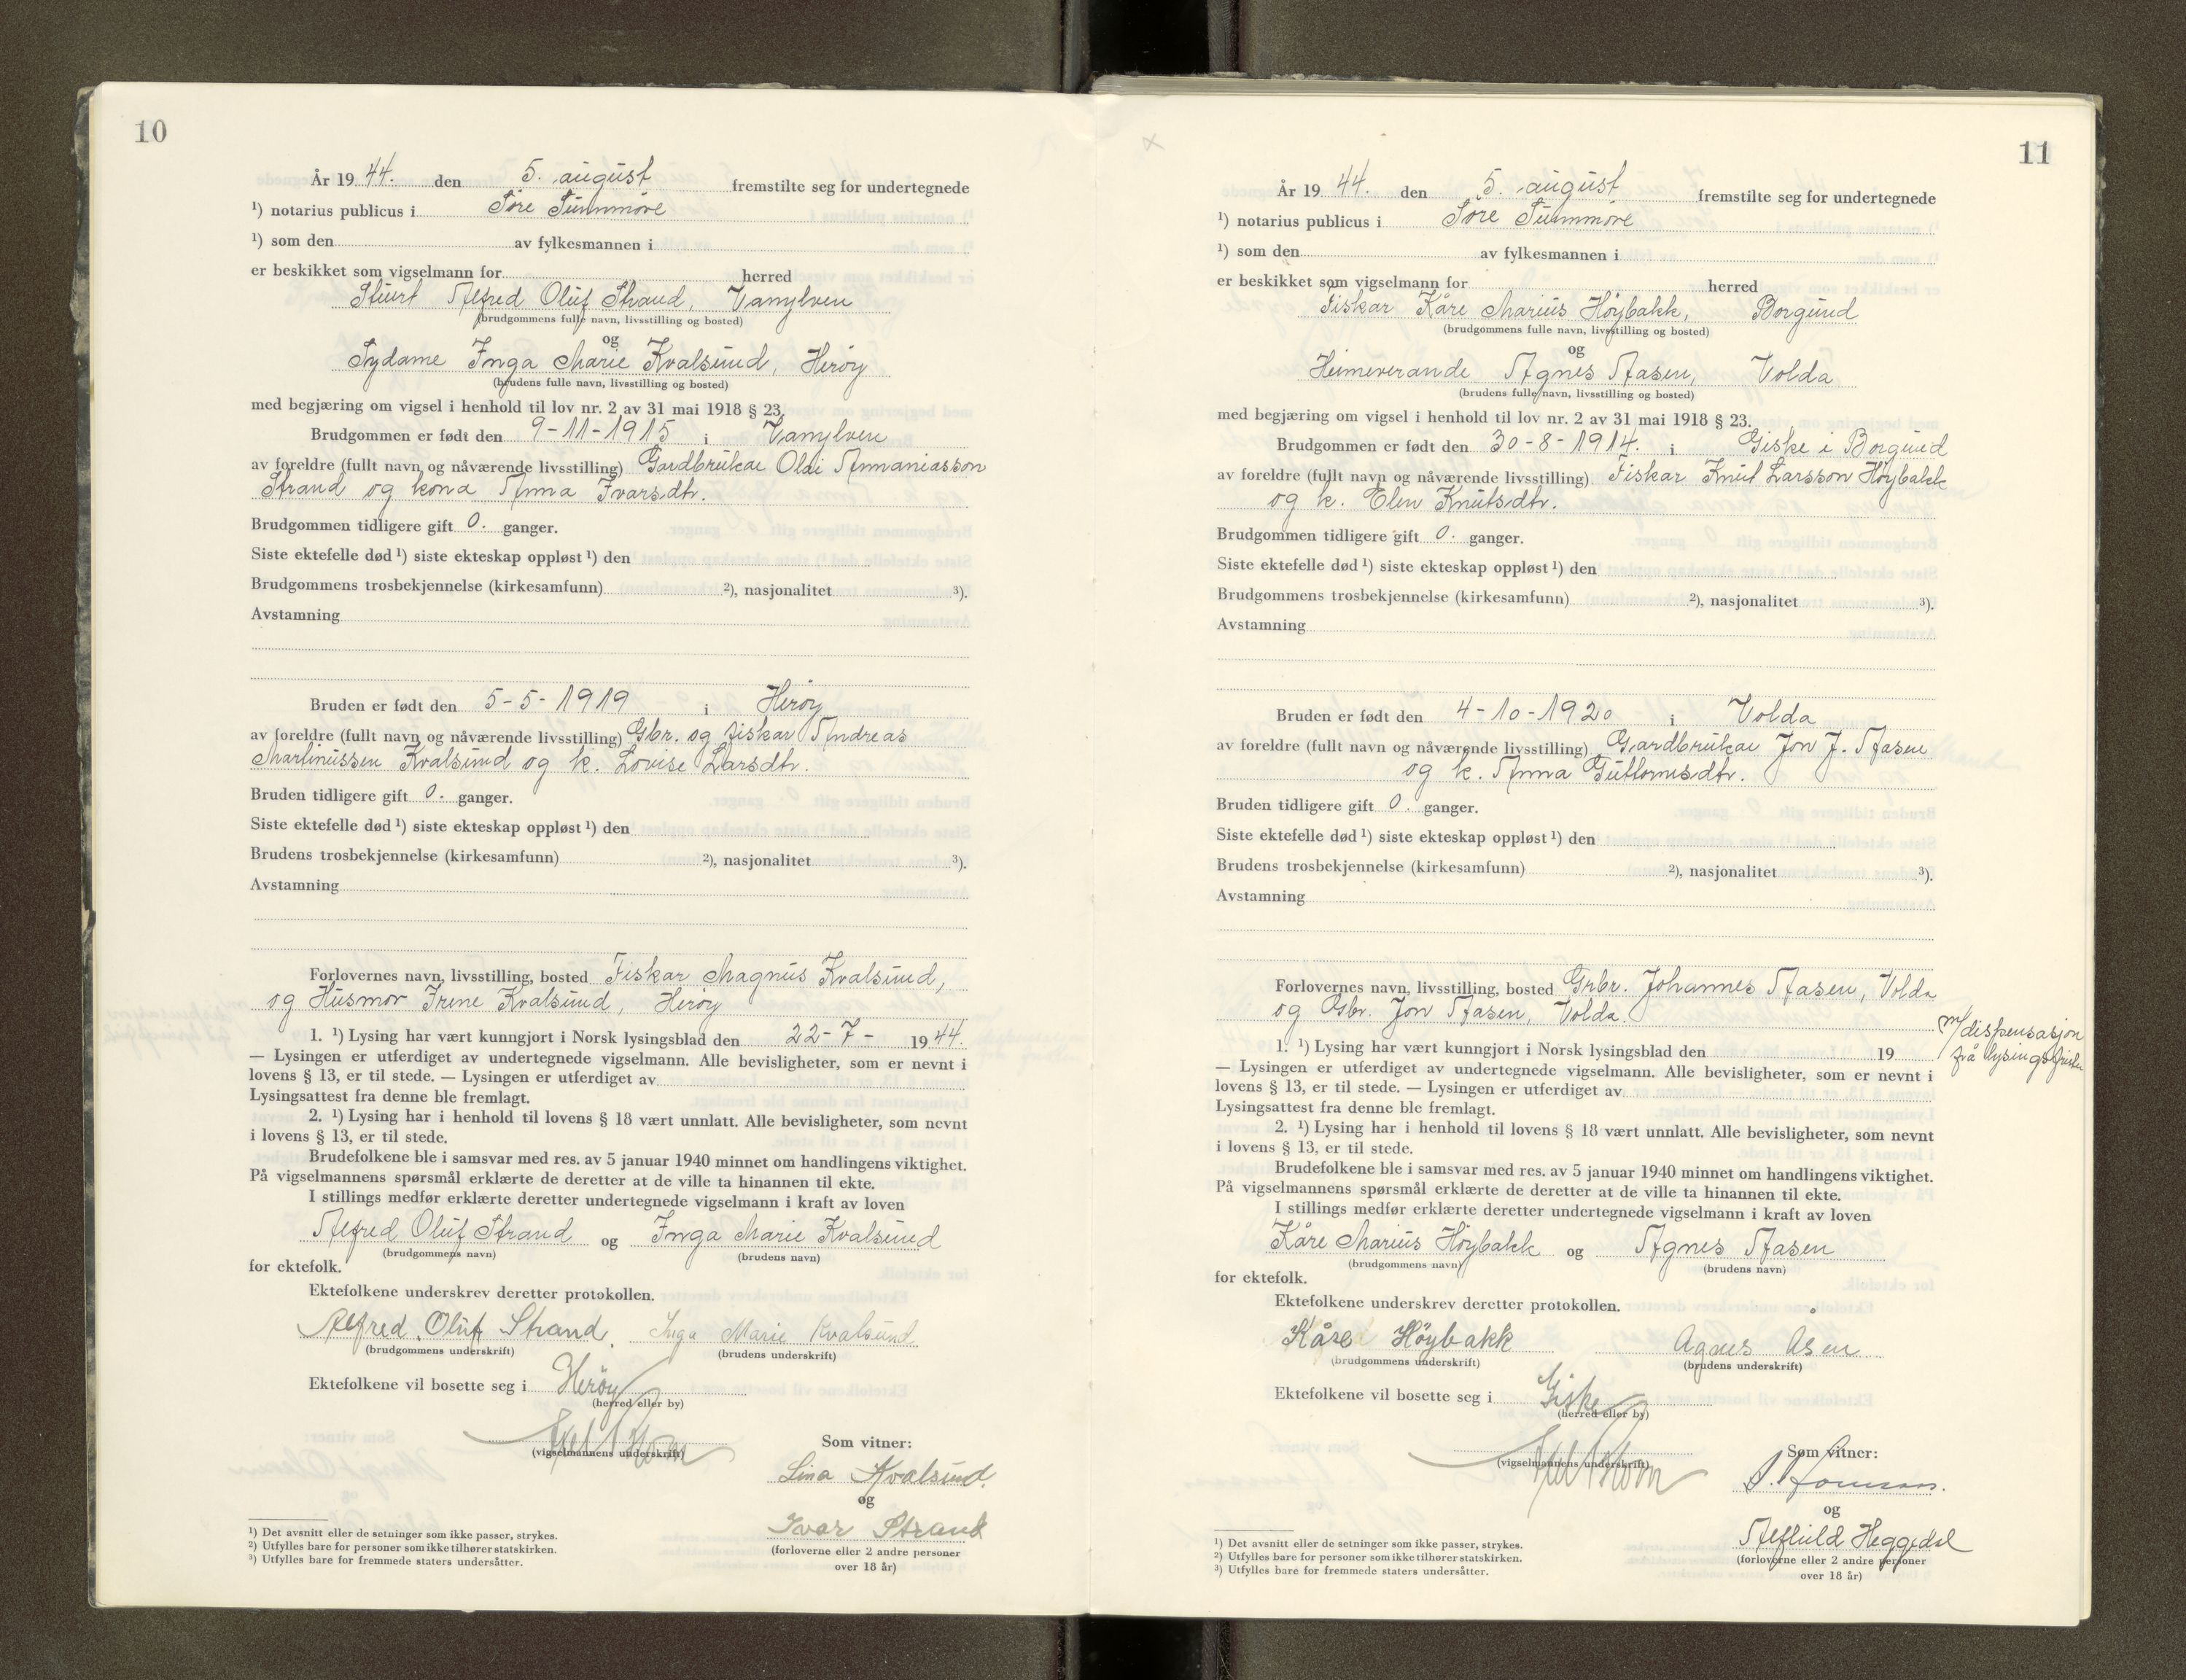 10
År 19 44. den 5. august fremstilte seg for undertegnede
¹) notarius publicus i Søre Sunnmøre
¹) som den av fylkesmannen i
er beskikket som vigselmann for herred
Stuert Alfred Oluf Strand, Vanylven
(brudgommens fulle navn, livsstilling og bosted)
og
Sydame Inga Marie Kvalsund, Herøy
(brudens fulle navn, livsstilling og bosted)
med begjæring om vigsel i henhold til lov nr. 2 av 31 mai 1918 § 23.
Brudgommen er født den 9-11-1915 i Vanylven
av foreldre (fullt navn og nåværende livsstilling) Gardbrukar Olai Annaniasson
Strand og kona Anna Ivarsdtr.
Brudgommen tidligere gift 0. ganger.
Siste ektefelle død ¹) siste ekteskap oppløst ¹) den
Brudgommens trosbekjennelse (kirkesamfunn) ²), nasjonalitet ³).
Avstamning
Bruden er født den 5-5-1919 i Herøy
av foreldre (fullt navn og nåværende livsstilling) Gbr. og fiskar Andreas
Martinussen Kvalsund og k. Lovise Larsdtr.
Bruden tidligere gift 0. ganger.
Siste ektefelle død ¹) siste ekteskap oppløst ¹) den
Brudens trosbekjennelse (kirkesamfunn) ²), nasjonalitet ³).
Avstamning
Forlovernes navn, livsstilling, bosted Fiskar Magnus Kvalsund,
og Husmor Irene Kvalsund, Herøy
1. ¹) Lysing har vært kunngjort i Norsk lysingsblad den 22-7- 19 44.
— Lysingen er utferdiget av undertegnede vigselmann. Alle bevisligheter, som er nevnt i
lovens § 13, er til stede. — Lysingen er utferdiget av
Lysingsattest fra denne ble fremlagt.
2. ¹) Lysing har i henhold til lovens § 18 vært unnlatt. Alle bevisligheter, som nevnt
i lovens § 13, er til stede.
Brudefolkene ble i samsvar med res. av 5 januar 1940 minnet om handlingens viktighet.
På vigselmannens spørsmål erklærte de deretter at de ville ta hinannen til ekte.
I stillings medfør erklærte deretter undertegnede vigselmann i kraft av loven
Alfred Oluf Strand og Inga Marie Kvalsund
(brudgommens navn) (brudens navn)
for ektefolk.
Ektefolkene underskrev deretter protokollen.
Alfred Oluf Strand. Inga Marie Kvalsund
(brudgommens underskrift) (brudens underskrift)
Ektefolkene vil bosette seg i Herøy
(herred eller by)
(vigselmannens underskrift)
Som vitner:
Lina Kvalsund.
og
Ivar Strand
(forloverne eller 2 andre personer
over 18 år)
¹) Det avsnitt eller de setninger som ikke passer, strykes.
²) Utfylles bare for personer som ikke tilhører statskirken.
³) Utfylles bare for fremmede staters undersåtter.
11
År 19 44. den 5. august fremstilte seg for undertegnede
¹) notarius publicus i Søre Sunnmøre
¹) som den av fylkesmannen i
er beskikket som vigselmann for herred
Fiskar Kåre Marius Höybakk, Borgund
(brudgommens fulle navn, livsstilling og bosted)
og
Heimeverande Agnes Aasen, Volda
(brudens fulle navn, livsstilling og bosted)
med begjæring om vigsel i henhold til lov nr. 2 av 31 mai 1918 § 23.
Brudgommen er født den 30-8-1914. i Giske i Borgund
av foreldre (fullt navn og nåværende livsstilling) Fiskar Knut Larsson Höybakk
og k. Elen Knutsdtr.
Brudgommen tidligere gift 0. ganger.
Siste ektefelle død ¹) siste ekteskap oppløst ¹) den
Brudgommens trosbekjennelse (kirkesamfunn) ²), nasjonalitet ³).
Avstamning
Bruden er født den 4-10-1920 i Volda
av foreldre (fullt navn og nåværende livsstilling) Gardbrukar Jon J. Aasen
og k. Anna Guttormsdtr.
Bruden tidligere gift 0. ganger.
Siste ektefelle død ¹) siste ekteskap oppløst ¹) den
Brudens trosbekjennelse (kirkesamfunn) ²), nasjonalitet ³).
Avstamning
Forlovernes navn, livsstilling, bosted Grbr. Johannes Aasen, Volda
og Gbr. Jon Aasen, Volda.
m/dispensasjon
frå lysingsfristen
1. ¹) Lysing har vært kunngjort i Norsk lysingsblad den 19
— Lysingen er utferdiget av undertegnede vigselmann. Alle bevisligheter, som er nevnt i
lovens § 13, er til stede. — Lysingen er utferdiget av
Lysingsattest fra denne ble fremlagt.
2. ¹) Lysing har i henhold til lovens § 18 vært unnlatt. Alle bevisligheter, som nevnt
i lovens § 13, er til stede.
Brudefolkene ble i samsvar med res. av 5 januar 1940 minnet om handlingens viktighet.
På vigselmannens spørsmål erklærte de deretter at de ville ta hinannen til ekte.
I stillings medfør erklærte deretter undertegnede vigselmann i kraft av loven
Kåre Marius Höybakk og Agnes Aasen
(brudgommens navn) (brudens navn)
for ektefolk.
Ektefolkene underskrev deretter protokollen.
Kåre Höybakk Agnes Åsen
(brudgommens underskrift) (brudens underskrift)
Ektefolkene vil bosette seg i Giske
(herred eller by)
(vigselmannens underskrift)
Som vitner:
og
Alfhild Heggedal
(forloverne eller 2 andre personer
over 18 år)
¹) Det avsnitt eller de setninger som ikke passer, strykes.
²) Utfylles bare for personer som ikke tilhører statskirken.
³) Utfylles bare for fremmede staters undersåtter.